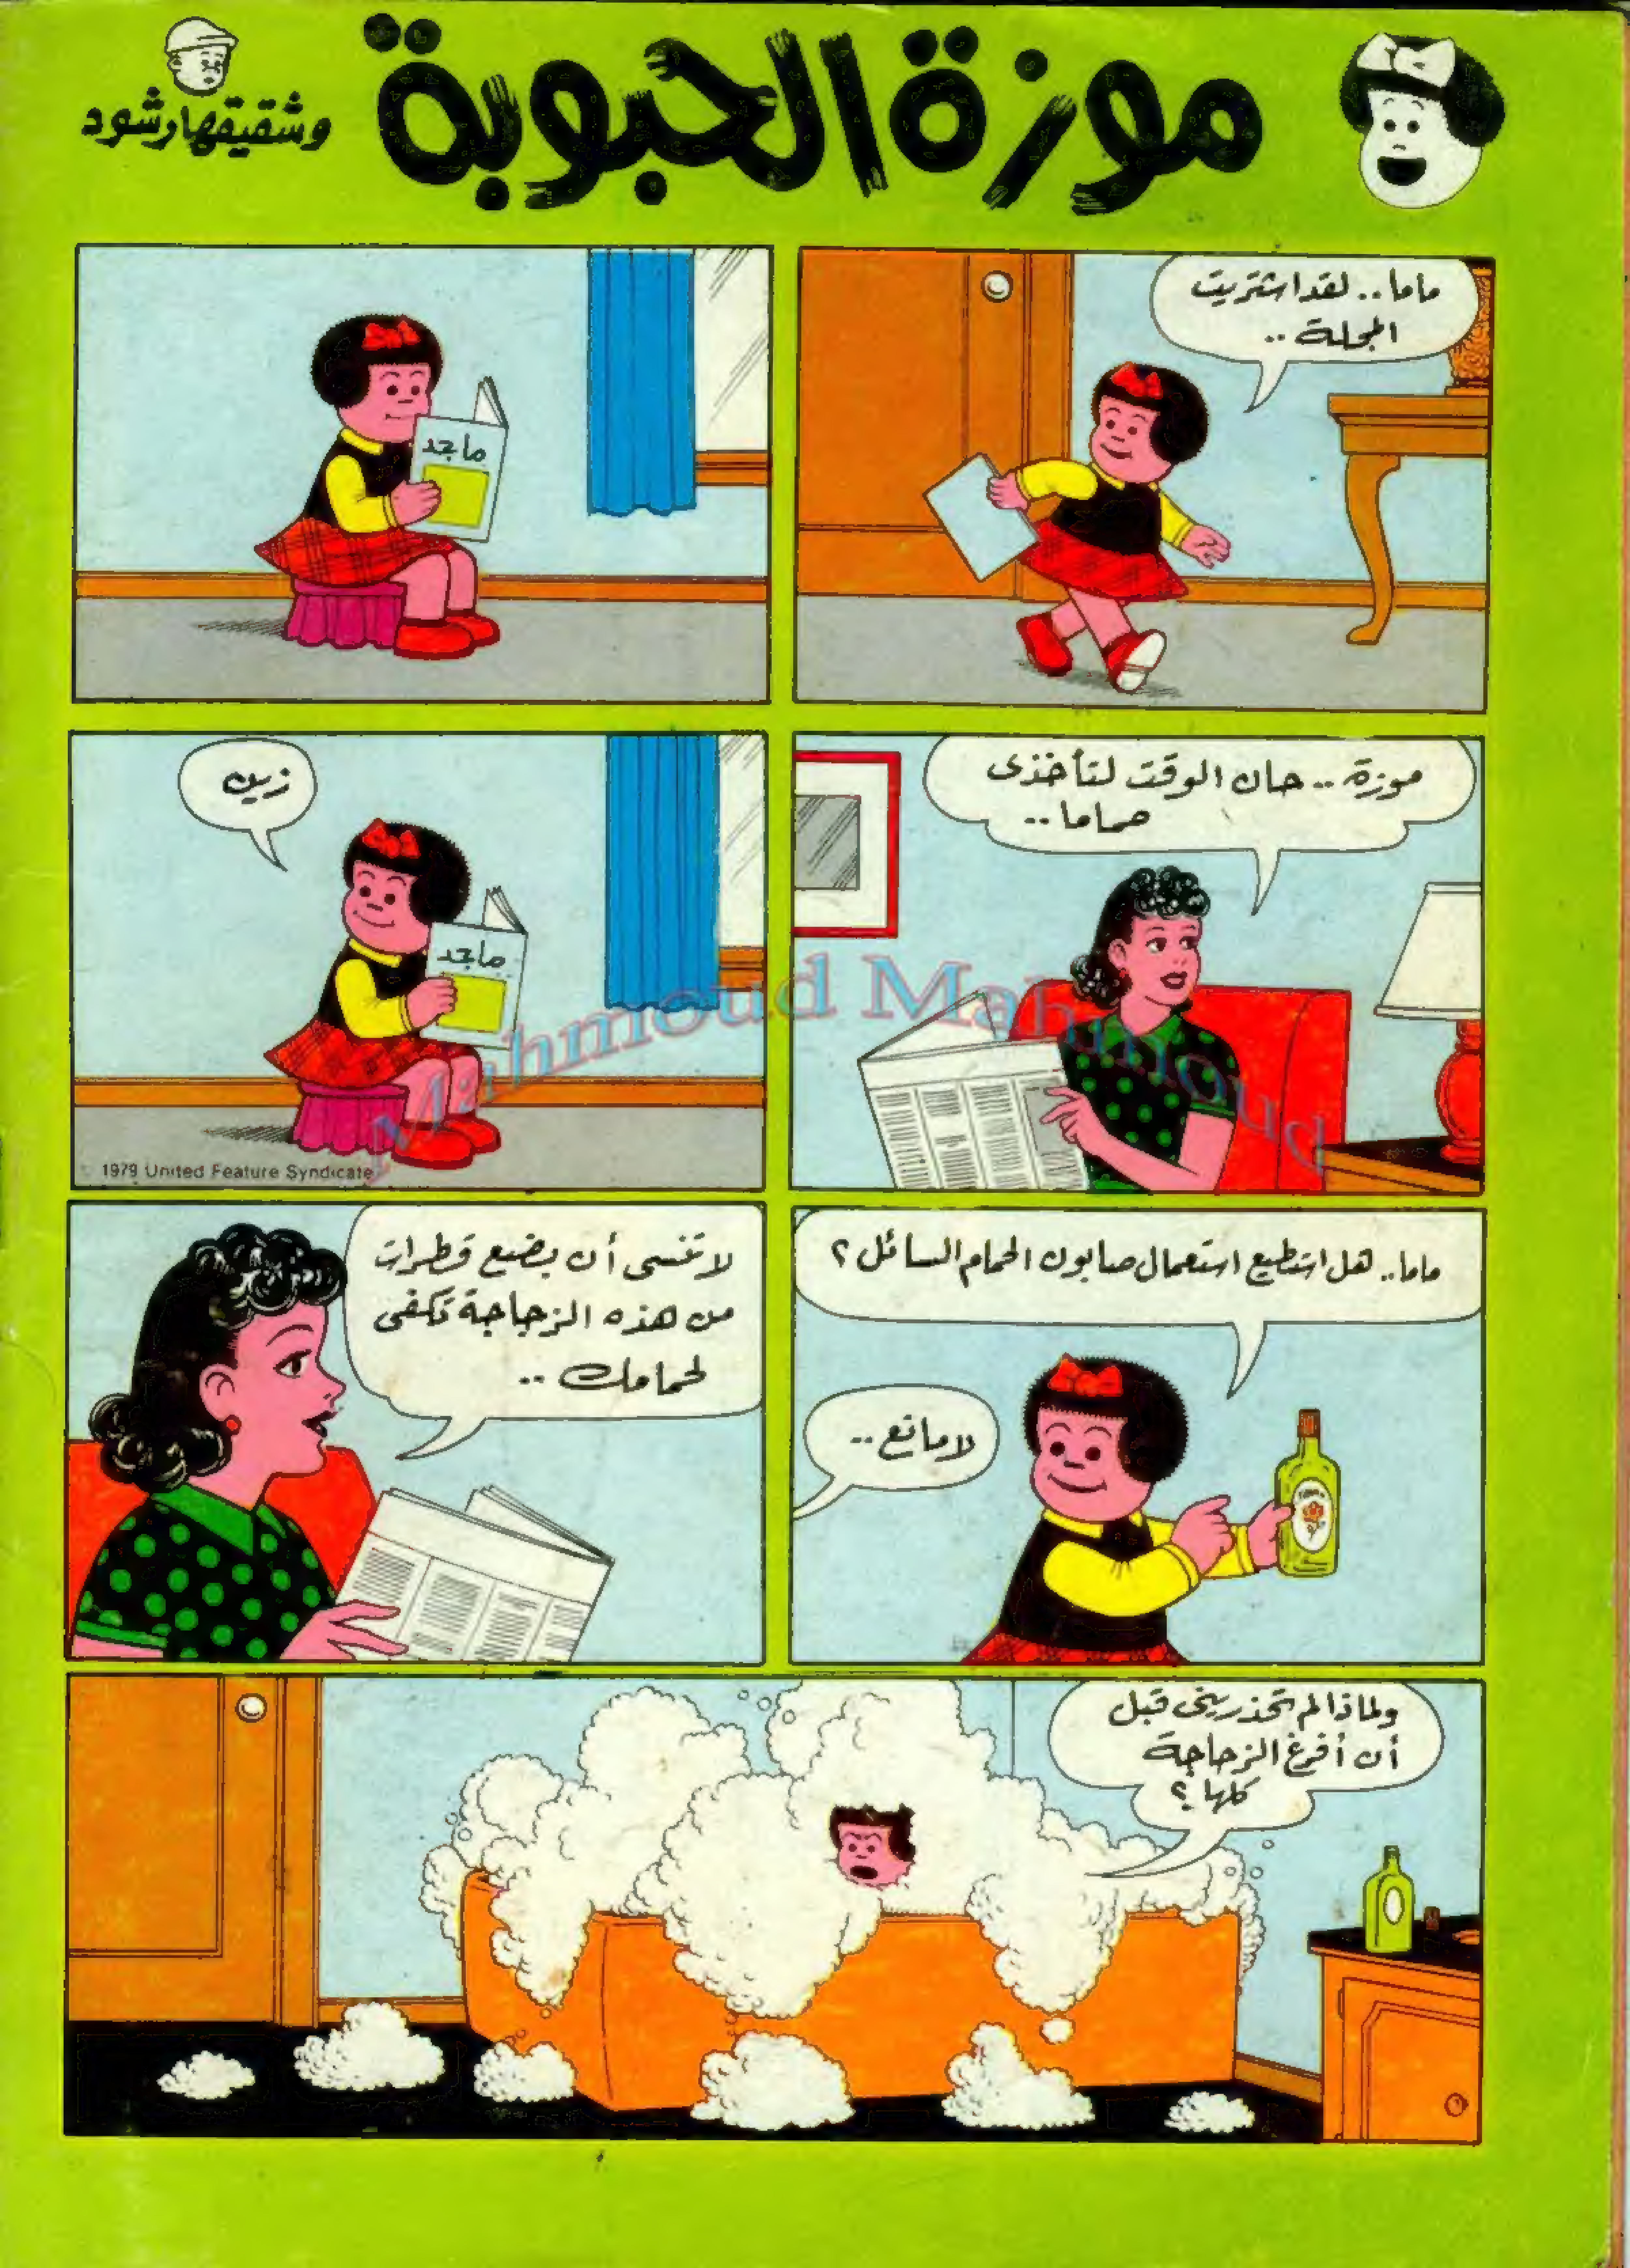 موزة الحبوبة
وشقيقها رشود
ماما.. لقد اشتريت
المجلة ..
ماجد
موزة .. حان الوقت لتأخذى
حماما ..
زين
ماجد
© 1979 United Feature Syndicate
ماما.. هل استطيع استعمال صابون الحمام السائل ؟
لا مانع ..
لا تنسى أن بضع قطرات
من هذه الزجاجة تكفى
لحمامك ..
ولماذا لم تحذرينى قبل
أن أفرغ الزجاجة
كلها ؟
Mahmoud Mahmoud